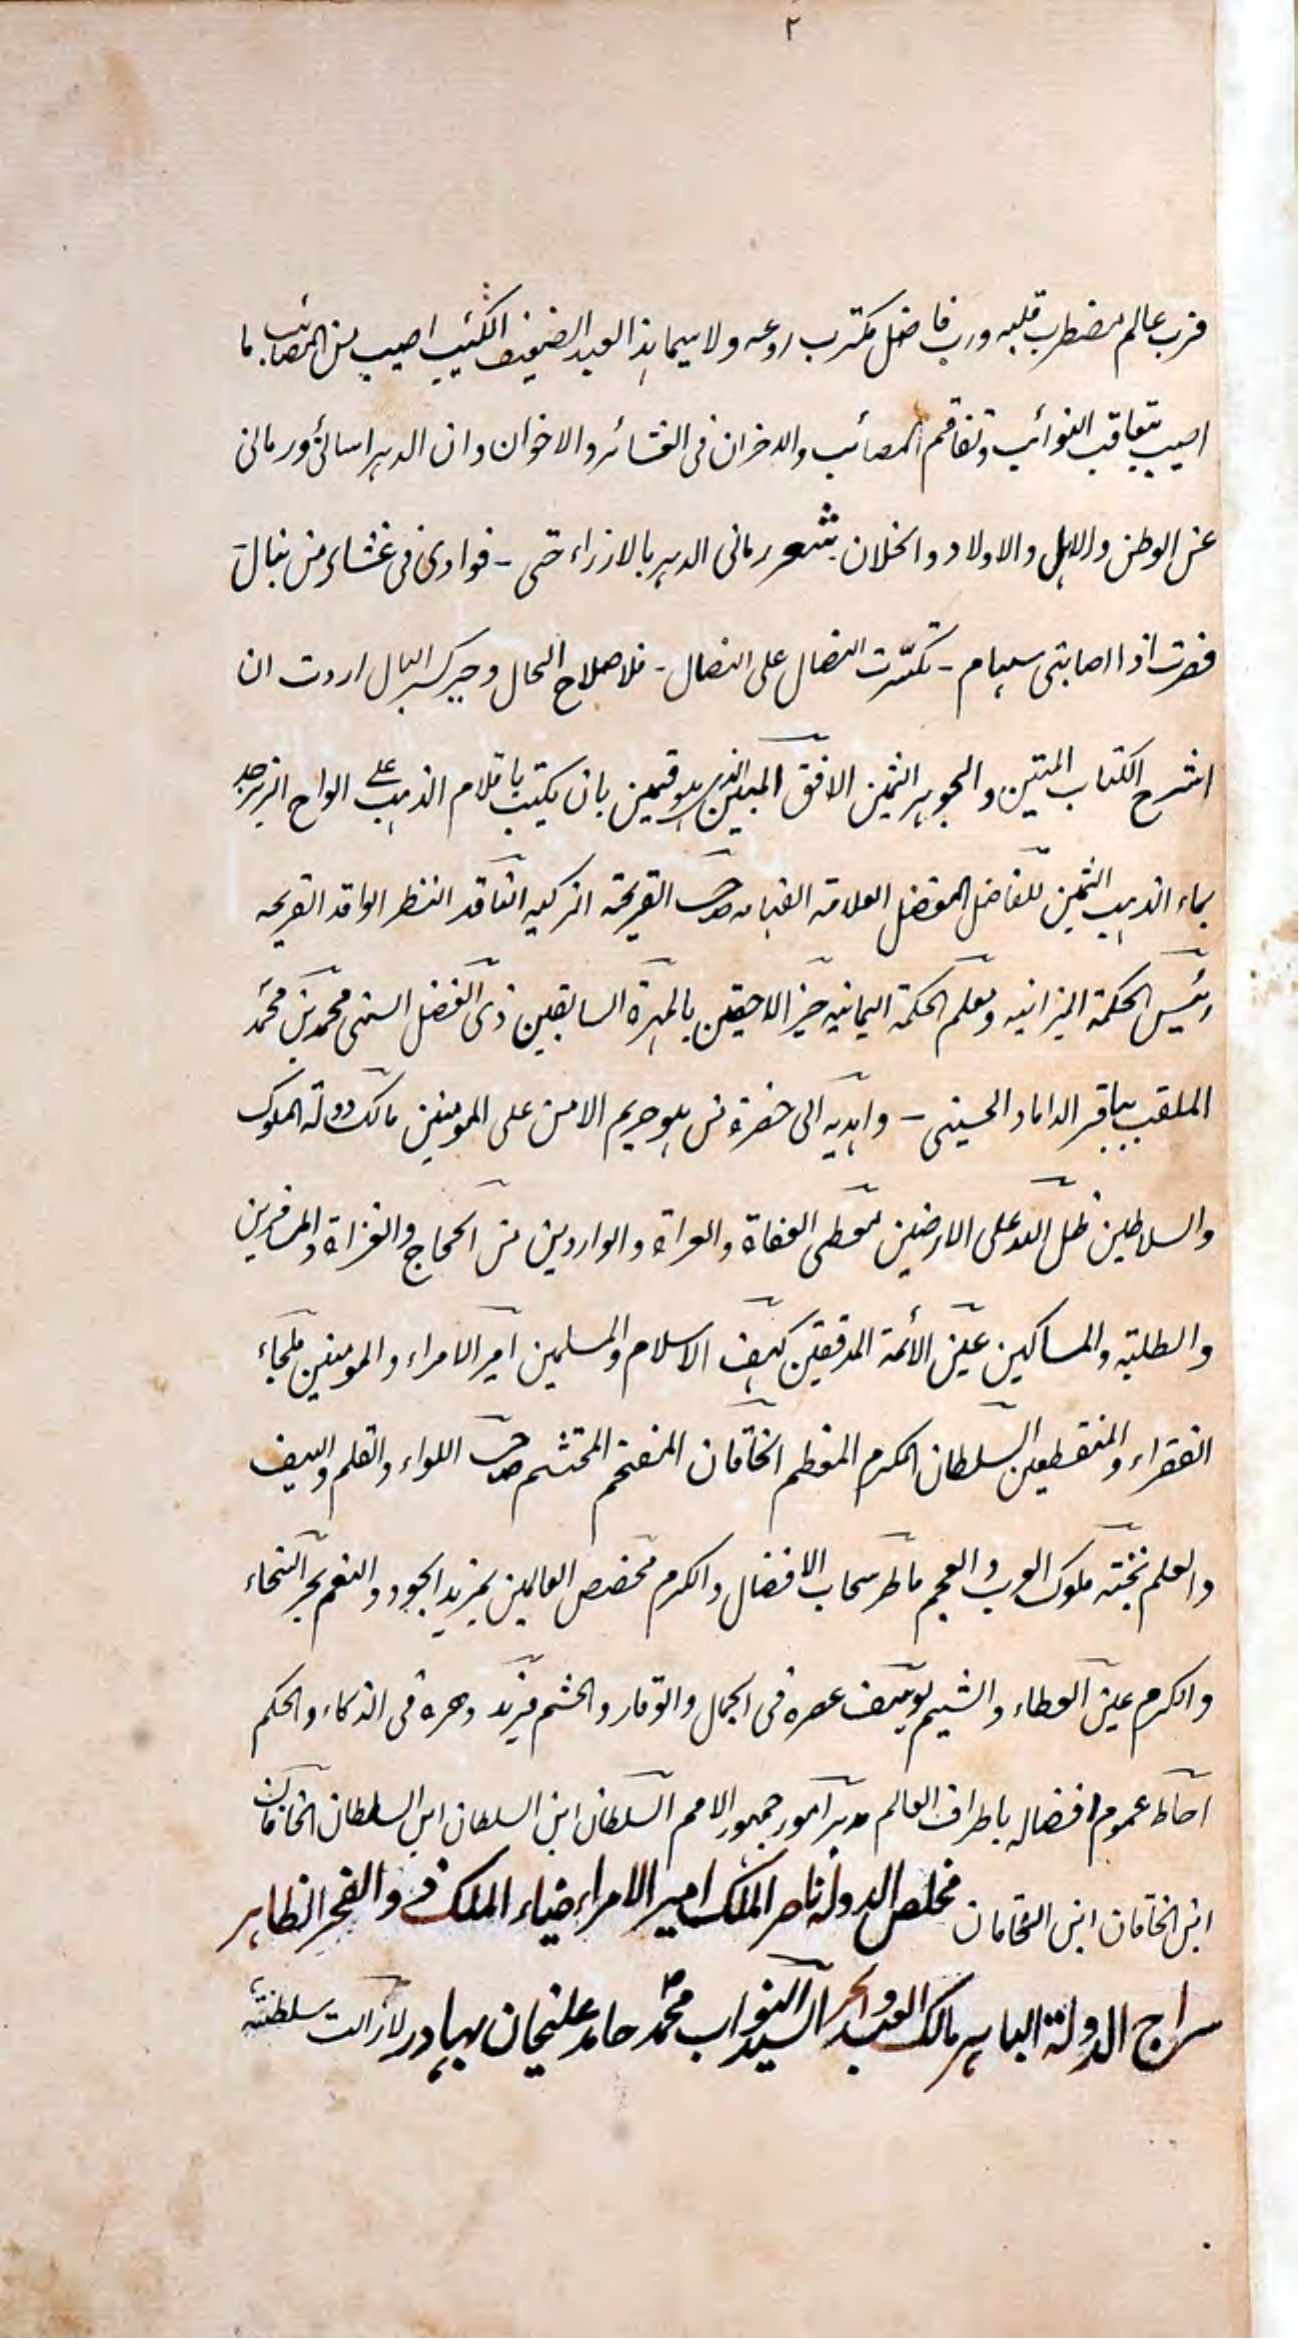 ٢
فرب عالم مضطرب قلبه ورب فاضل مكترب روعه ولا سيما هذا العبد الضعيف الكئيب اصيب من المصائب ما
اصيب بتعاقب النوائب وتفاقم المصائب والاحزان فى العشائر والاخوان وان الدهر اسائنى ورمانى
عن الوطن والاهل والاولاد والخلان شعر رمانى الدهر بالارزاء حتى - فوادى فى غشاء من نبال
فصرت اذا اصابتنى سهام - تكسّرت النصال على النصال - فلاصلاح الحال وجبر كسر البال اردت ان
اشرح الكتاب المتين والجوهر الثمين الافق المبين الذى هو قمين بان يكتب باقلام الذهب على الواح الزبرجد
بماء الذهب الثمين للفاضل المفضل العلامة الفهامه صاحب القريحة الزكيه الناقد النظر الواقد القريحه
رئيس الحكمة الميزانيه ومعلم الحكمة اليمانيه خير اللاحقين بالمهرة السابقين ذى الفضل السنى محمد بن محمد
الملقب بباقر الداماد الحسينى - واهديه الى حضرة من هو حريم الامن على المومنين مالك دولة الملوك
والسلاطين ظل الله على الارضين معطى العفاة والعراة والواردين من الحجاج والغزاة والمسافرين
والطلبة والمساكين عين الأئمة المدققين كهف الاسلام والمسلمين امير الامراء والمومنين ملجاء
الفقراء والمنقطعين السلطان المكرم المعظم الخاقان المفخم المحتشم صاحب اللواء والقلم والسيف
والعلم نخبة ملوك العرب والعجم ماطر سحاب الافضال والكرم مخصص العالمين بمزيد الجود والنعم بحر السخاء
والكرم عين العطاء والشيم يوسف عصره فى الجمال والوقار والحشم فريد دهره فى الذكاء والحكم
احاط عموم افضاله باطراف العالم مدبر امور جمهور الامم السلطان ابن السلطان ابن السلطان الخاقان
ابن الخاقان ابن الخاقان مخلص الدولة ناصر الملك امير الامراء ضياء الملك ذو الفخر الظاهر
سراج الدولة الباهر مالك العبد والحر السيد النواب محمد حامد عليخان بهادر لازالت سلطنته